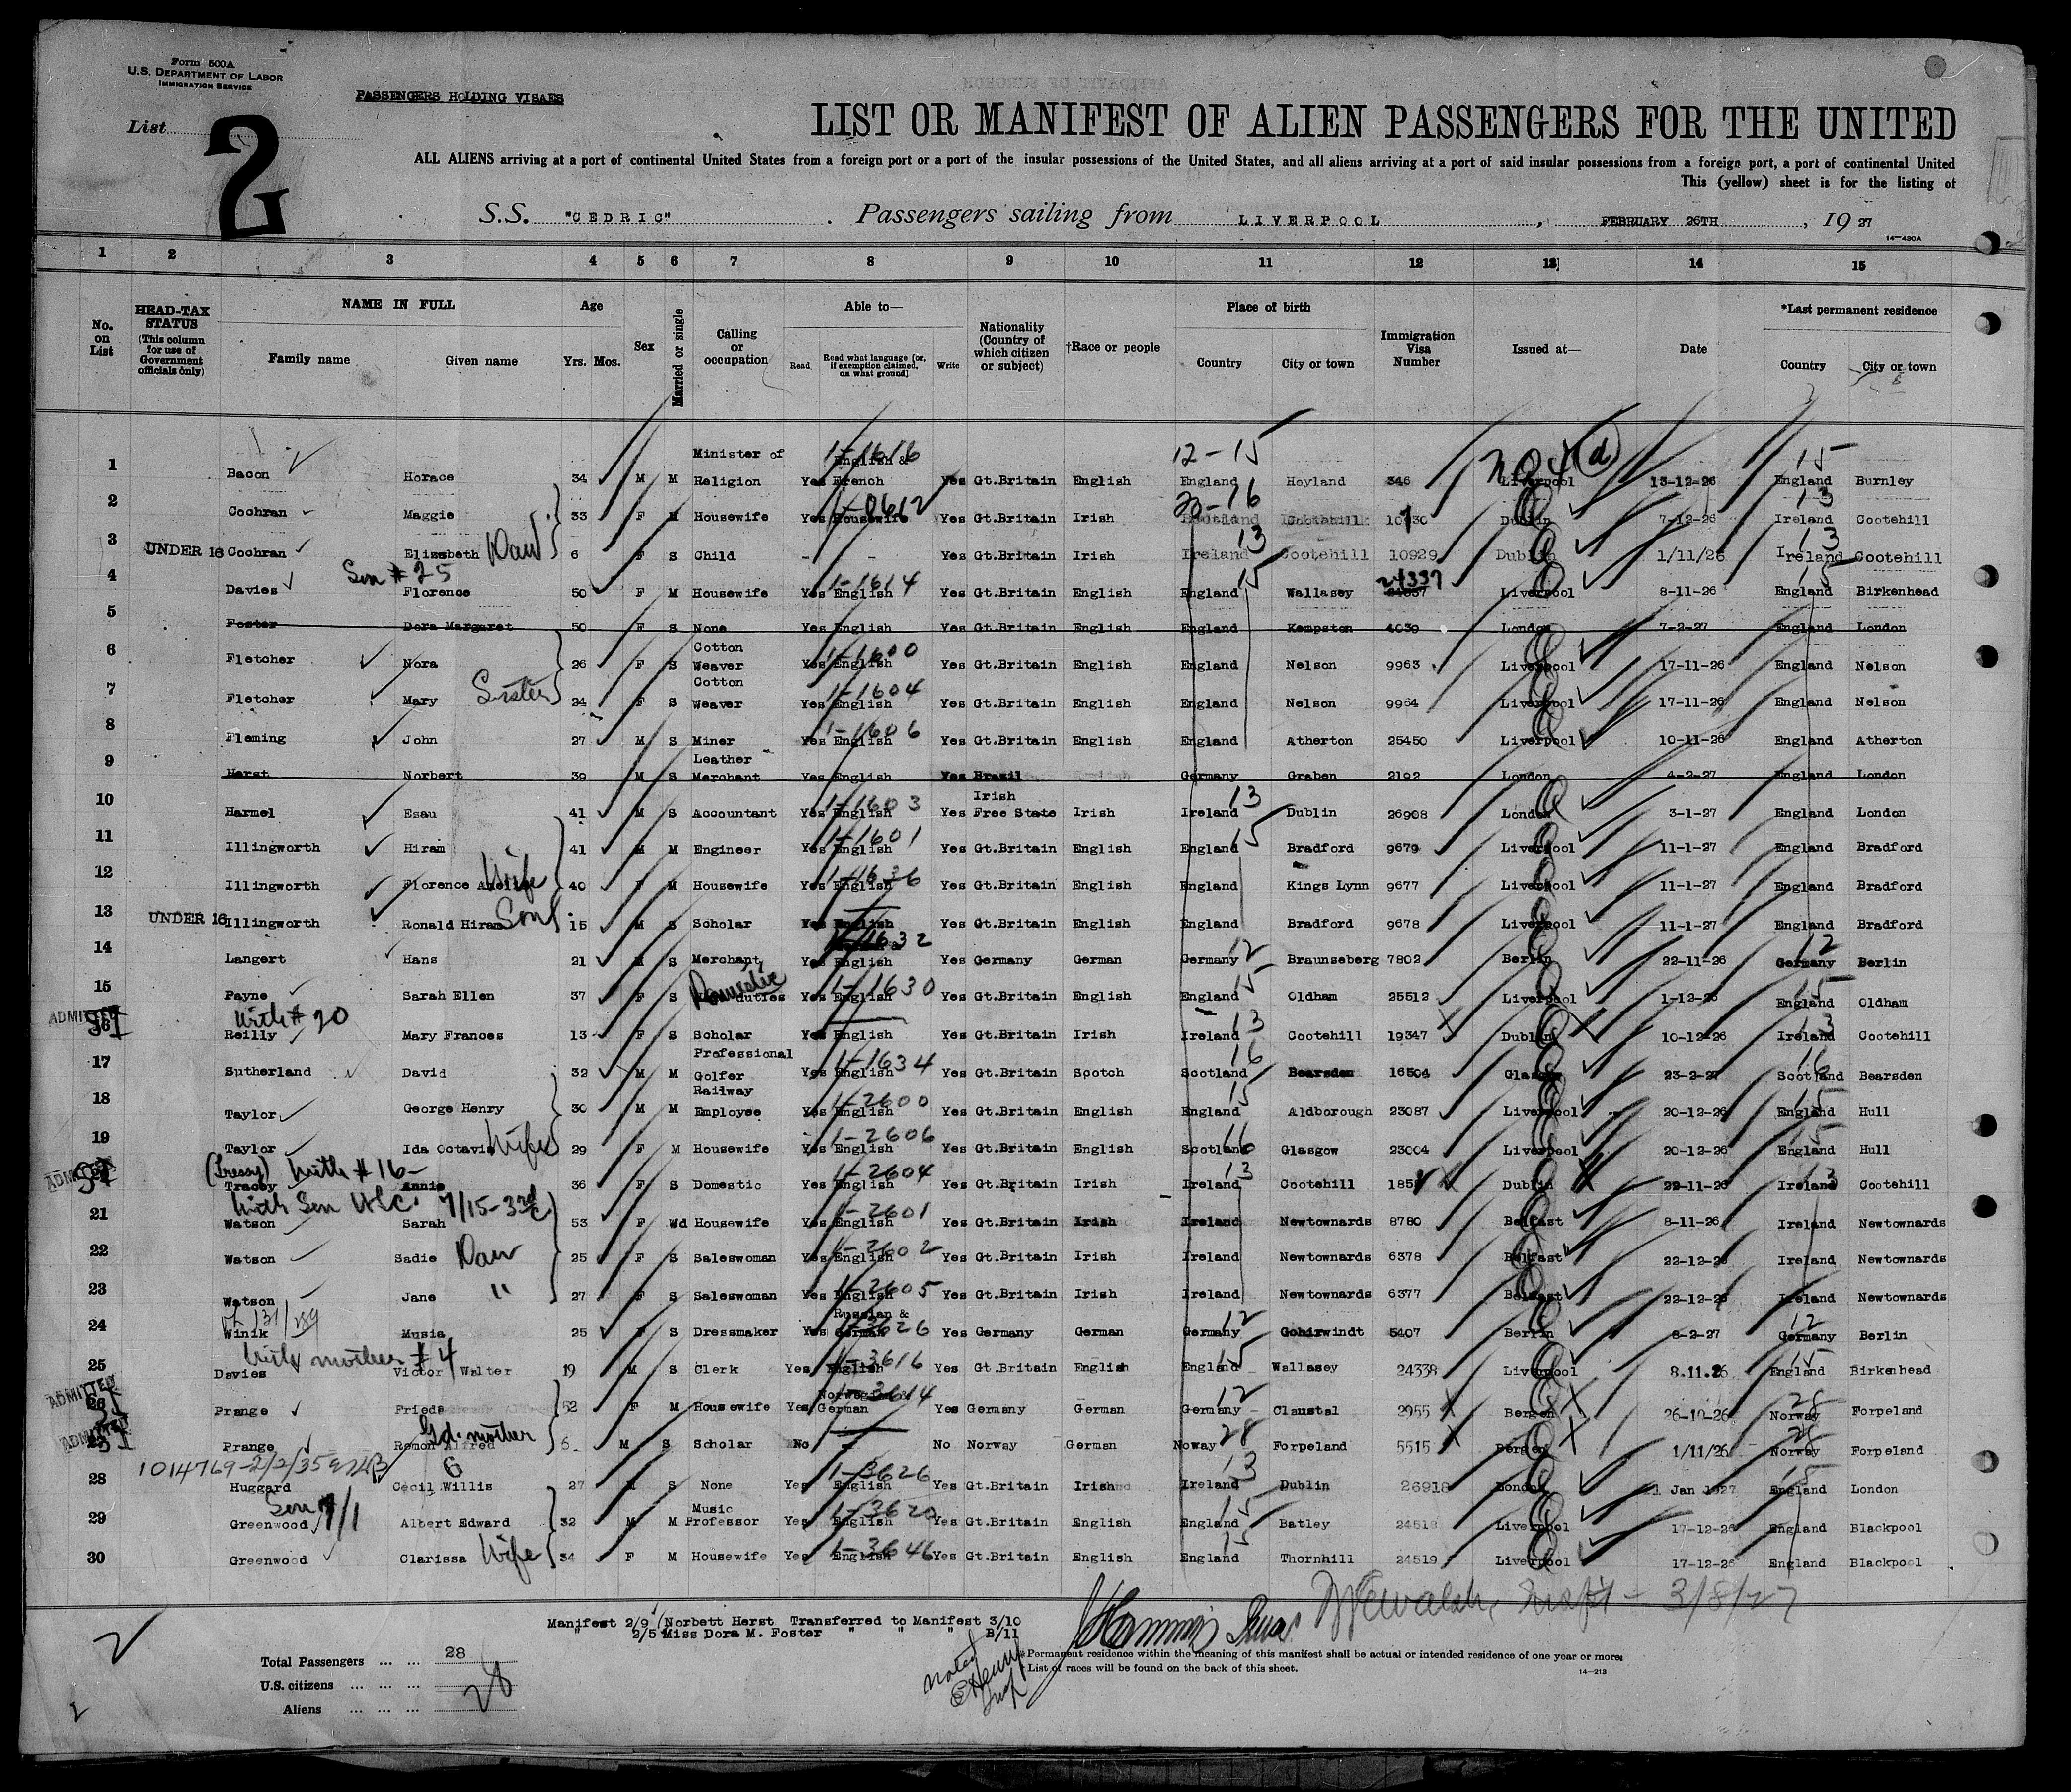 Form 500A
U.S. DEPARTMENT OF LABOR
IMMIGRATION SERVICE
PASSENGERS HOLDING VISAES
List 2
LIST OR MANIFEST OF ALIEN PASSENGERS FOR THE UNITED
ALL ALIENS arriving at a port of continental United States from a foreign port or a port of the insular possessions of the United States, and all aliens arriving at a port of said insular possessions from a foreign port, a port of continental United
This (yellow) sheet is for the listing of
S.S. "CEDRIC" Passengers sailing from LIVERPOOL, FEBRUARY 26TH, 1927
14—430A
1 2 3 4 5 6 7 8 9 10 11 12 13 14 15
No. on List
HEAD-TAX STATUS (This column for use of Government officials only)
NAME IN FULL Family name Given name
Age Yrs. Mos.
Sex
Married or single
Calling or occupation
Able to— Read Read what language [or, if exemption claimed, on what ground] Write
Nationality (Country of which citizen or subject)
†Race or people
Place of birth Country City or town
Immigration Visa Number
Issued at—
Date
*Last permanent residence Country City or town
1 Bacon Horace 34 M M Minister of Religion Yes English & French 1-1616 Yes Gt.Britain English England 12-15 Hoyland 346 Liverpool 13-12-26 England 15 Burnley
2 Cochran Maggie 33 F M Housewife Yes Housewife Yes Gt.Britain Irish Cootehill Dublin 7-12-26 Ireland 13 Cootehill
3 UNDER 16 Cochran Elizabeth Dau 6 F S Child - - Yes Gt.Britain Irish Ireland 13 Cootehill 10929 Dublin 1/11/26 Ireland 13 Cootehill
Son # 25
4 Davies Florence 50 F M Housewife Yes English 1-1614 Yes Gt.Britain English England 15 Wallasey 24337 Liverpool 8-11-26 England 15 Birkenhead
5 Foster Dora Margaret 50 F S None Yes English Yes Gt.Britain English England Kempston 4039 London 7-2-27 England London
6 Fletcher Nora 26 F S Cotton Weaver Yes English 1-1600 Yes Gt.Britain English England Nelson 9963 Liverpool 17-11-26 England Nelson
7 Fletcher Mary Sister 24 F S Cotton Weaver Yes English 1-1604 Yes Gt.Britain English England Nelson 9964 Liverpool 17-11-26 England Nelson
8 Fleming John 27 M S Miner Yes English 1-1606 Yes Gt.Britain English England Atherton 25450 Liverpool 10-11-26 England Atherton
9 Herst Norbert 39 M S Leather Merchant Yes English Yes Brazil Germany Graben 2192 London 4-2-27 England London
10 Harmel Esau 41 M S Accountant Yes English 1-1603 Yes Irish Free State Irish Ireland 13 Dublin 26908 London 3-1-27 England London
11 Illingworth Hiram 41 M M Engineer Yes English 1-1601 Yes Gt.Britain English England 15 Bradford 9679 Liverpool 11-1-27 England Bradford
12 Illingworth Florence Wife 40 F M Housewife Yes English 1-1636 Yes Gt.Britain English England Kings Lynn 9677 Liverpool 11-1-27 England Bradford
13 UNDER 16 Illingworth Ronald Hiram Son 15 M S Scholar Yes English Yes Gt.Britain English England Bradford 9678 Liverpool 11-1-27 England Bradford
14 Langert Hans 21 M S Merchant Yes English 1-1632 Yes Germany German Germany 12 Braunseberg 7802 Berlin 22-11-26 Germany 12 Berlin
15 Payne Sarah Ellen 37 F S Domestic duties Yes English 1-1630 Yes Gt.Britain English England 15 Oldham 25512 Liverpool 1-12-26 England 15 Oldham
ADMITTED With # 20
Reilly Mary Frances 13 F S Scholar Yes English Yes Gt.Britain Irish Ireland 13 Cootehill 19347 Dublin 10-12-26 Ireland 13 Cootehill
17 Sutherland David 32 M M Professional Golfer Yes English 1-1634 Yes Gt.Britain Scotch Scotland 16 Bearsden 16504 Glasgow 23-2-27 Scotland 16 Bearsden
18 Taylor George Henry 30 M M Railway Employee Yes English 1-2600 Yes Gt.Britain English England 15 Aldborough 23087 Liverpool 20-12-26 England 15 Hull
19 Taylor Ida Octavia Wife 29 F M Housewife Yes English 1-2606 Yes Gt.Britain English Scotland 16 Glasgow 23004 Liverpool 20-12-26 England 15 Hull
ADMITTED (Tressy) With # 16-
Tracey Annie 36 F S Domestic Yes English 1-2604 Yes Gt.Britain Irish Ireland 13 Cootehill Dublin 22-11-26 Ireland 13 Cootehill
With Son 7/15-3rd C
21 Watson Sarah 53 F Wd Housewife Yes English 1-2601 Yes Gt.Britain Irish Ireland Newtownards 8780 Belfast 8-11-26 Ireland Newtownards
22 Watson Sadie Dau 25 F S Saleswoman Yes English 1-2602 Yes Gt.Britain Irish Ireland Newtownards 6378 Belfast 22-12-26 Ireland Newtownards
23 Watson Jane " 27 F S Saleswoman Yes English 1-2605 Yes Gt.Britain Irish Ireland Newtownards 6377 Belfast 22-12-26 Ireland Newtownards
24 Winik Musia 25 F S Dressmaker Yes Russian & German Yes Germany German Germany 12 5407 Berlin 8-2-27 Germany 12 Berlin
With mother # 4
25 Davies Victor Walter 19 M S Clerk Yes English 1-3616 Yes Gt.Britain English England 15 Wallasey 24338 Liverpool 8.11.26 England 15 Birkenhead
ADMITTED
Prange Frieda 52 F M Housewife Yes Norwegian & German Yes Germany German Germany 12 Claustal 2955 Bergen 26-10-26 Norway 28 Forpeland
ADMITTED
Prange Ramon Alfred Gd. mother 6 M S Scholar No - No Norway German Noway 28 Forpeland 5515 Bergen 1/11/26 Norway 28 Forpeland
1014769-2/2/35
28 Huggard Cecil Willis 27 M S None Yes English 1-3626 Yes Gt.Britain Irish Ireland 13 Dublin 26918 London Jan 1927 England 15 London
29 Greenwood Albert Edward 32 M M Music Professor Yes English 1-3620 Yes Gt.Britain English England 15 Batley 24518 Liverpool 17-12-26 England Blackpool
30 Greenwood Clarissa Wife 34 F M Housewife Yes English 1-3646 Yes Gt.Britain English England 15 Thornhill 24519 Liverpool 17-12-26 England Blackpool
3/8/27
Manifest 2/9 (Norbett Herst Transferred to Manifest 3/10
" 2/5 Miss Dora M. Foster " " " B/11
Total Passengers ... ... 28
U.S. citizens ... ... ...
Aliens ... ... ... 28
noted
* Permanent residence within the meaning of this manifest shall be actual or intended residence of one year or more.
† List of races will be found on the back of this sheet.
14—213